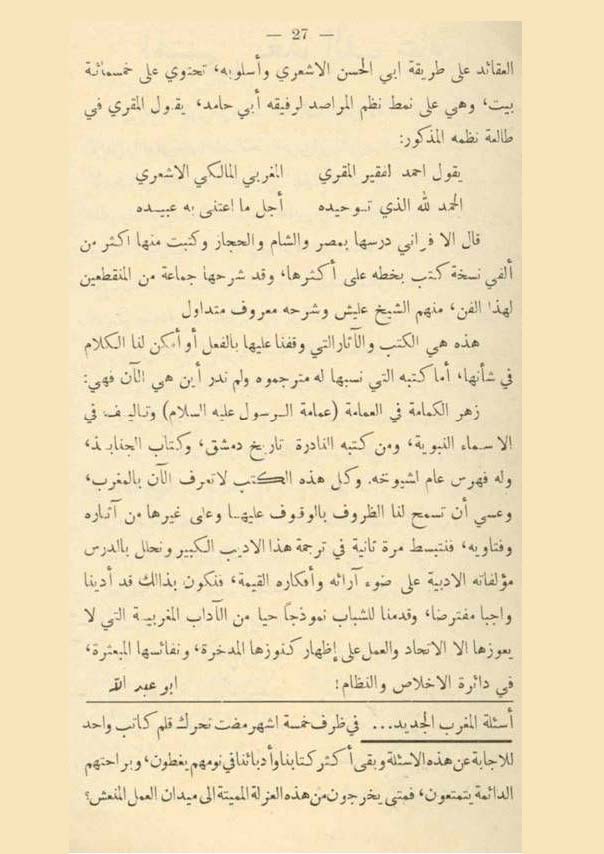 — 27 —
العقائد على طريقة ابي الحسن الاشعري وأسلوبه، تحتوي على خمسمائة
بيت، وهي على نمط نظم المراصد لرفيقه أبي حامد، يقول المقري في
طالعة نظمه المذكور:
يقول احمد الفقير المقري المغربي المالكي الاشعري
الحمد لله الذي توحيده أجل ما اعتنى به عبيده
قال الافراني درسها بمصر والشام والحجاز وكتبت منها اكثر من
ألفي نسخة كتب بخطه على أكثرها، وقد شرحها جماعة من المنقطعين
لهذا الفن، منهم الشيخ عليش وشرحه معروف متداول
هذه هي الكتب والآثار التي وقفنا عليها بالفعل أو أمكن لنا الكلام
في شأنها، أما كتبه التي نسبها له مترجموه ولم ندر أين هي الآن فهي:
زهر الكمامة في العمامة (عمامة الرسول عليه السلام) وتاليف في
الاسماء النبوية، ومن كتبه النادرة تاريخ دمشق، وكتاب الجنابذ،
وله فهرس عام لشيوخه. وكل هذه الكتب لا تعرف الآن بالمغرب،
وعسى أن تسمح لنا الظروف بالوقوف عليها وعلى غيرها من آثاره
وفتاويه، فنتبسط مرة ثانية في ترجمة هذا الاديب الكبير ونحلل بالدرس
مؤلفاته الادبية على ضوء آرائه وأفكاره القيمة، فنكون بذالك قد أدينا
واجبا مفترضا، وقدمنا للشباب نموذجاً حيا من الآداب المغربية التي لا
يعوزها الا الاتحاد والعمل على إظهار كنوزها المدخرة، ونفائسها المبعثرة،
في دائرة الاخلاص والنظام! ابو عبد الله
أسئلة المغرب الجديد... في ظرف خمسة اشهر مضت تحرك قلم كاتب واحد
للاجابة عن هذه الاسئلة وبقى أكثر كتابنا وأدبائنا في نومهم يغطون، وبراحتهم
الدائمة يتمتعون، فمتى يخرجون من هذه العزلة المميتة الى ميدان العمل المنعش؟